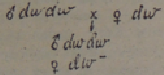 ♂ dw dw x ♀ dw
↓
♂ dw dw
♀ dw -